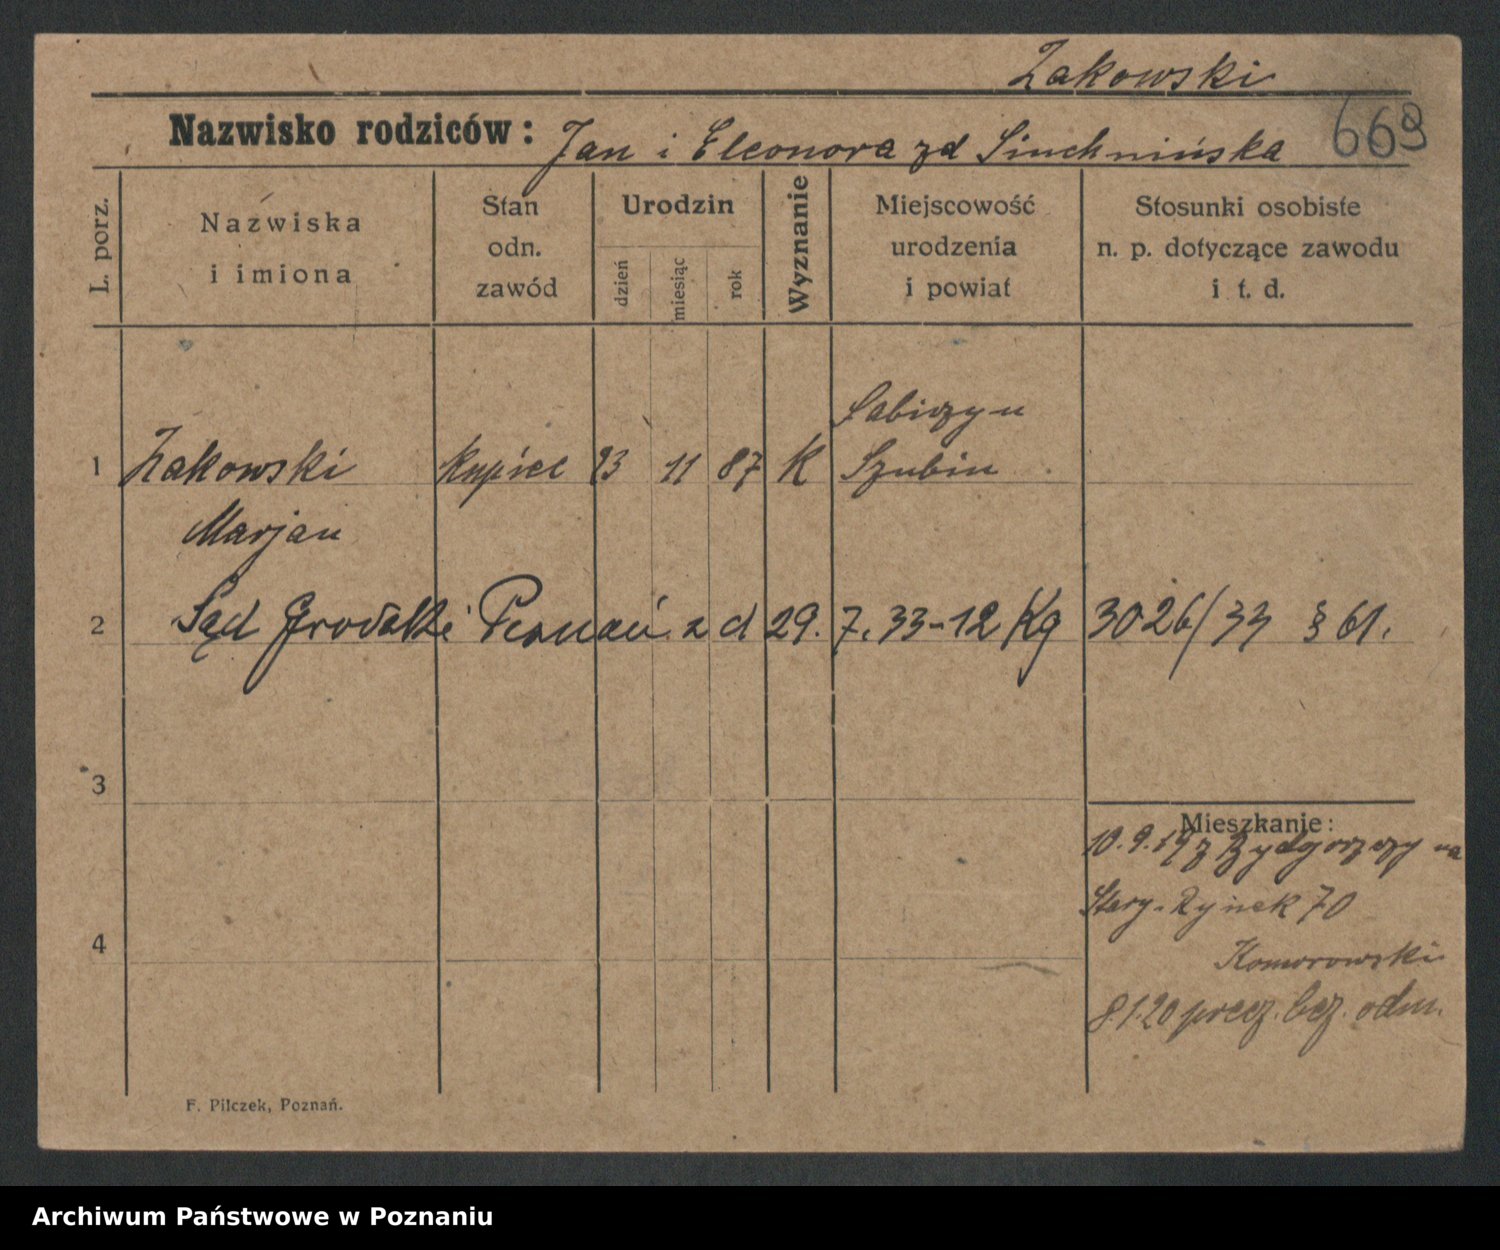 Zakowski
Nazwisko rodziców: Jan i Eleonora zd Siuchnińska
669
L. porz.
Nazwiska
i imiona
Stan
odn.
zawód
Urodzin
dzień
miesiąc
rok
Wyznanie
Miejscowość
urodzenia
i powiat
Stosunki osobiste
n. p. dotyczące zawodu
i t. d.
Łabiszyn
1 Zakowski kupiec 23 11 87 K Szubin
Marjan
2 Sąd Grodzki Poznań z d 29. 7. 33 - 12 Kg 3026/33 § 61.
3
Mieszkanie:
10.9.19 z Bydgoszczy na
Stary-Rynek 70
4
Komorowski
8.1.20 precz. bez. odm.
F. Pilczek, Poznań.
Archiwum Państwowe w Poznaniu